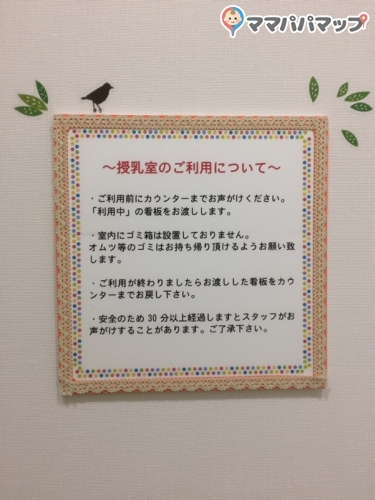 ママパパマップ
～授乳室のご利用について～
・ご利用前にカウンターまでお声がけください。
「利用中」の看板をお渡しします。
・室内にゴミ箱は設置しておりません。
オムツ等のゴミはお持ち帰り頂けるようお願い致
します。
・ご利用が終わりましたらお渡しした看板をカウ
ンターまでお戻し下さい。
・安全のため 30 分以上経過しますとスタッフがお
声がけすることがあります。ご了承下さい。